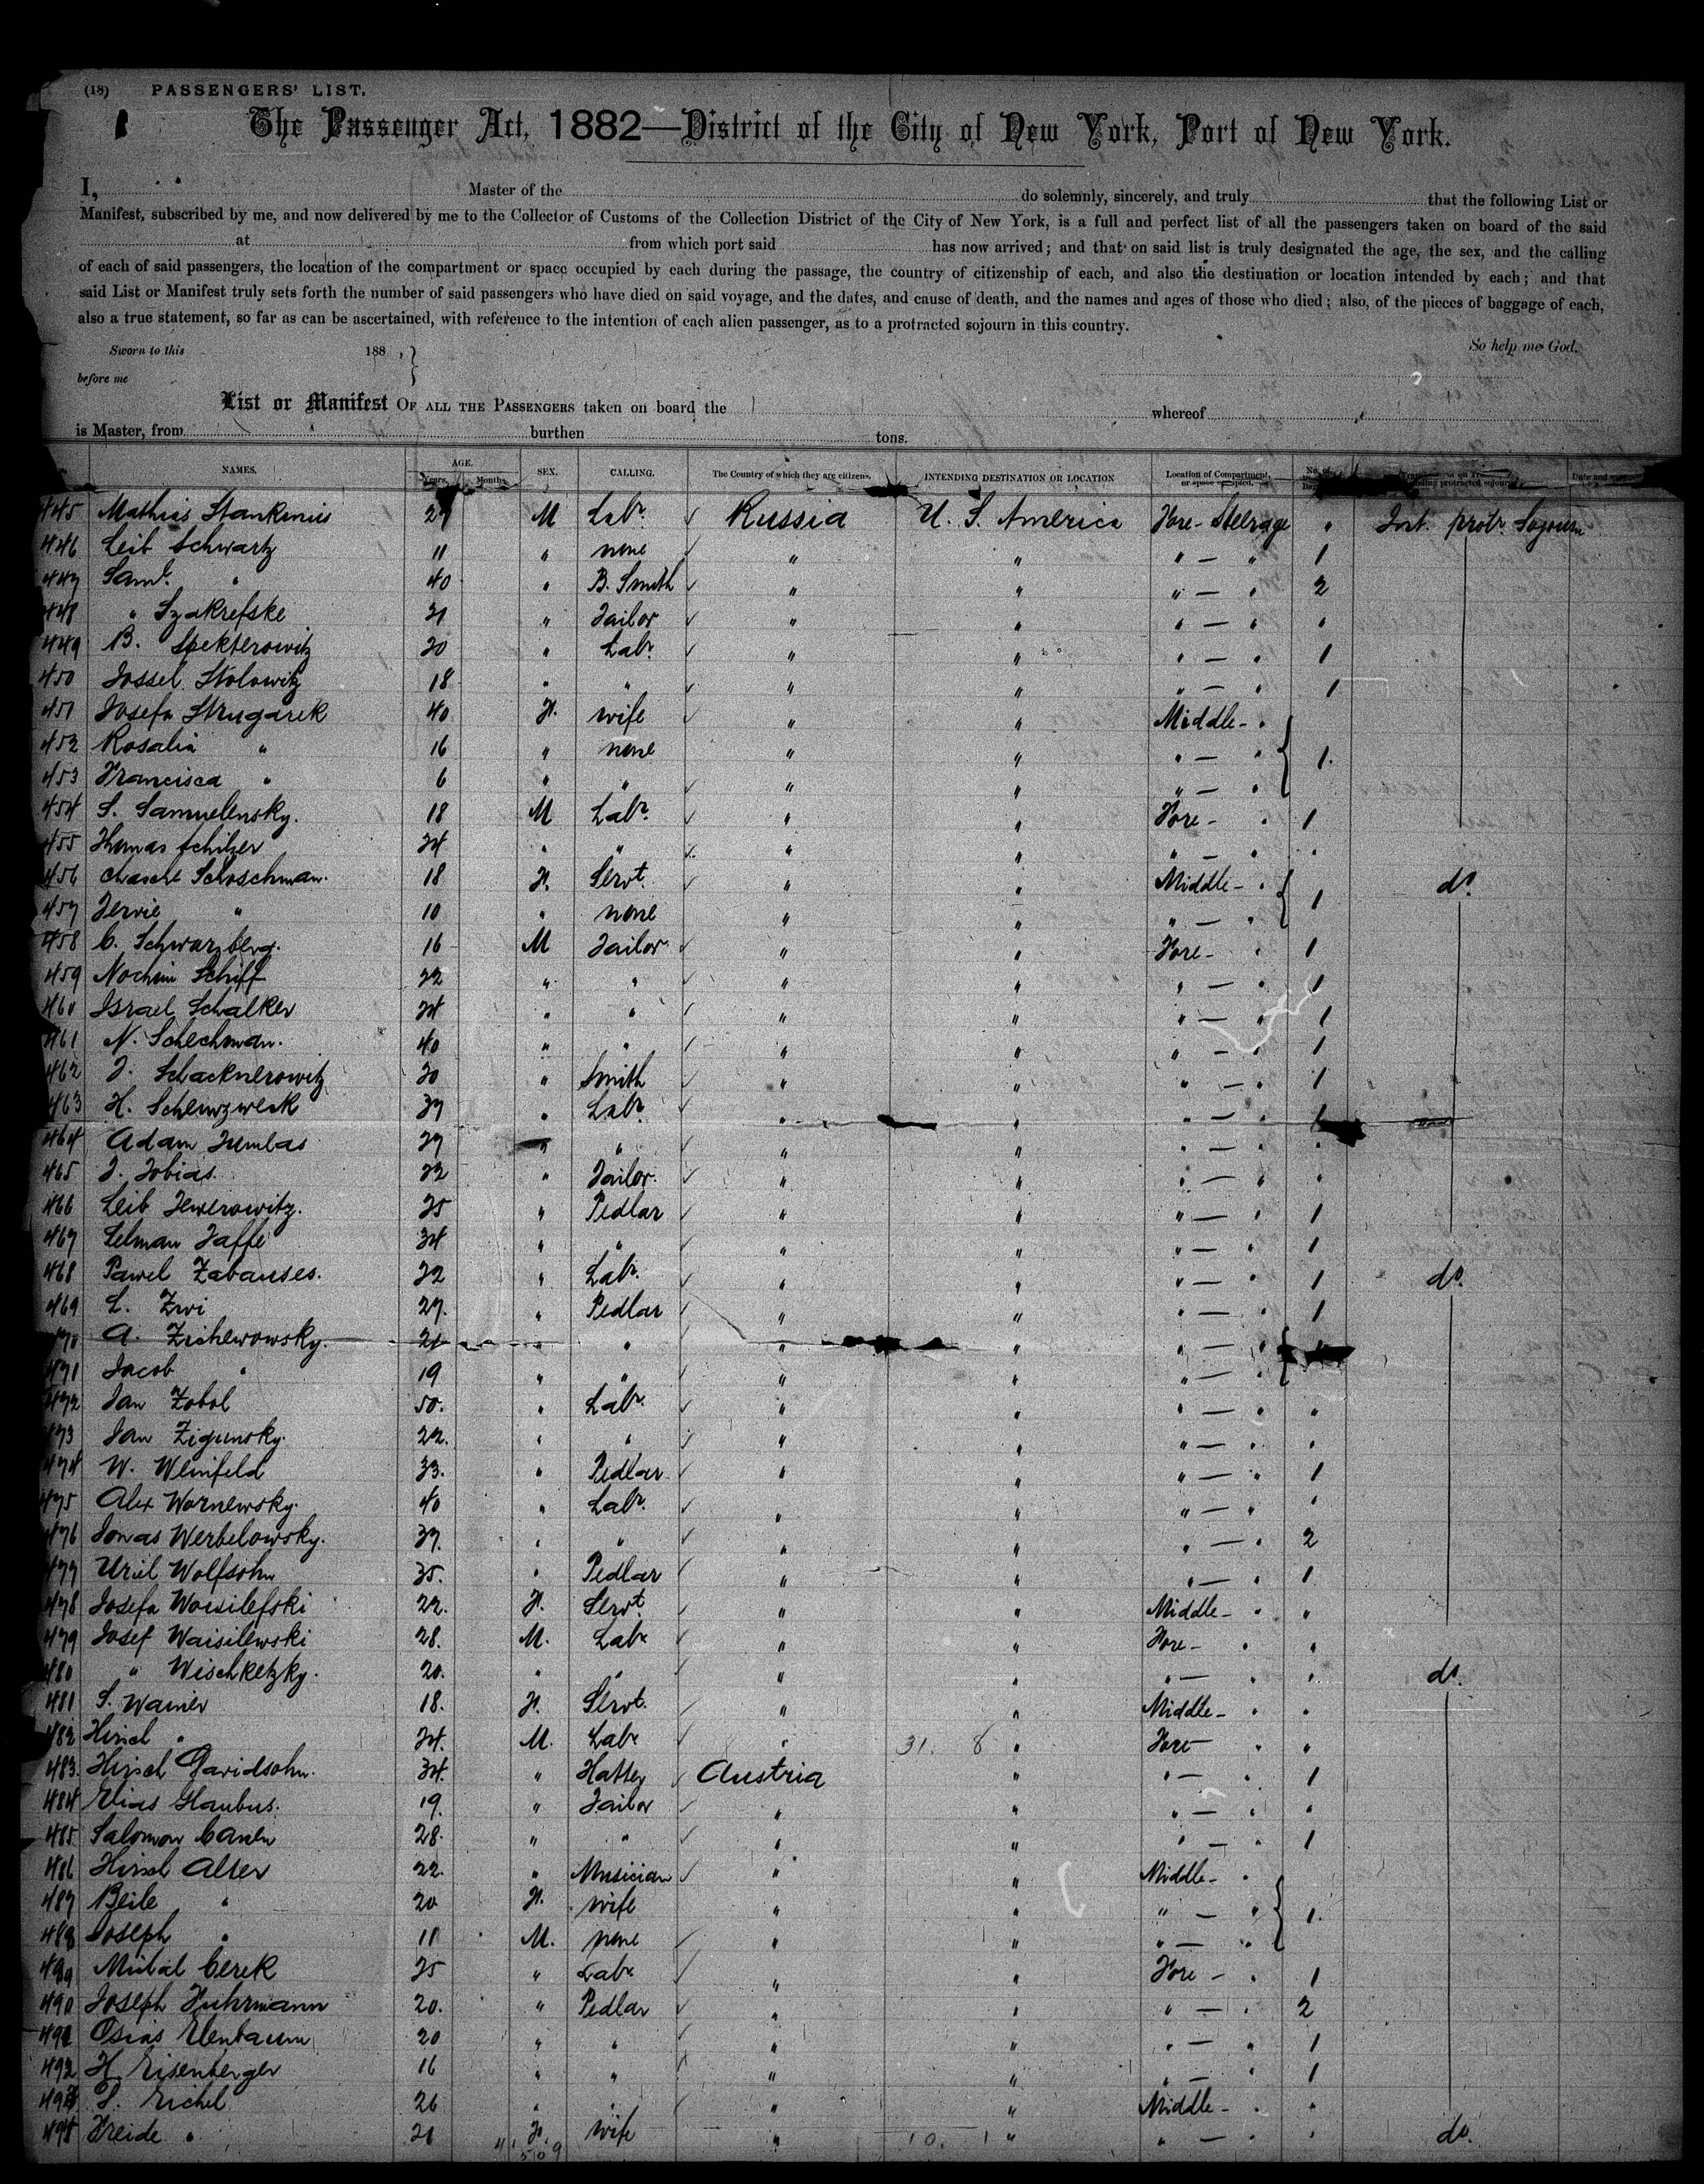 (18) PASSENGERS' LIST.
The Passenger Act, 1882—District of the City of New York, Port of New York.
I, Master of the do solemnly, sincerely, and truly that the following List or
Manifest, subscribed by me, and now delivered by me to the Collector of Customs of the Collection District of the City of New York, is a full and perfect list of all the passengers taken on board of the said
at from which port said has now arrived; and that on said list is truly designated the age, the sex, and the calling
of each of said passengers, the location of the compartment or space occupied by each during the passage, the country of citizenship of each, and also the destination or location intended by each; and that
said List or Manifest truly sets forth the number of said passengers who have died on said voyage, and the dates, and cause of death, and the names and ages of those who died; also, of the pieces of baggage of each,
also a true statement, so far as can be ascertained, with reference to the intention of each alien passenger, as to a protracted sojourn in this country.
Sworn to this 188 , } So help me God.
before me
List or Manifest OF ALL THE PASSENGERS taken on board the whereof
is Master, from burthen tons.
NAMES. AGE. Years. Months. SEX. CALLING. The Country of which they are citizens. INTENDING DESTINATION OR LOCATION Location of Compartment, or space occupied. No. of
445 Mathis Stankunis M Labr. Russia U. S. America Fore-Steerage " Int. protr. Sojourn
446 Leib Schwartz 11 " none " " " — " 1
447 Saml. " 40 " B. Smith " " " — " 2
448 " Szakrefske 21 " Tailor " " " — " "
449 B. Spekterowitz 20 " Labr. " " " — " 1
450 Jossel Stolowitz 18 " " " " " — " 1
451 Josefa Strugarek 40 F. wife " " Middle - "
452 Rosalia " 16 " none " " " — " 1.
453 Francisca " 6 " " " " " — "
454 S. Samuelensky. 18 M Labr. " " Fore - " 1
455 Thomas 24 " " " " " — " "
456 Chasche Schoschman. 18 F. Servt. " " Middle - " 1 do.
457 " 10 " none " " " — "
458 C. Schwarzberg. 16 M Tailor " " Fore - " 1
459 Nochim Schiff 22 " " " " " — " 1
460 Israel Schalker 24 " " " " " — " 1
461 N. Schechman. 40 " " " " " — " 1
462 J. Schacknerowitz 20 " Smith " " " — " 1
463 H. 37 " Labr. " " " — "
464 Adam Tumlas 27 " " " " " — " "
465 J. Tobias. 22 " Tailor. " " " — " "
466 Leib Tewerowitz. 25 " Pedlar " " " — " 1
467 Selman Jaffe 34 " " " " " — " 1
468 Pawel Zabauses. 22 " Labr. " " " — " 1 do.
469 L. Zwi 27. " Pedlar " " " — " 1
470 A. Zichewowsky. 21 " " " " " — "
471 Jacob " 19 " " " " " — "
472 Jan Zobol 50. " Labr. " " " — " "
473 Jan Zigunsky. 22. " " " " " — " "
474 W. Weinfeld 33. " Pedlar " " " — " 1
475 Alex Wornewsky. 40 " Labr. " " " — " "
476 Jonas Werbelowsky. 37. " " " " " — " 2
477 Uriel Wolfsohn 35. " Pedlar " " " — " 1
478 Josefa Woisilefski 22. F. Servt. " " Middle - " "
479 Josef Waisilewski 28. M. Labr " " Fore - " "
480 " Wischketzky. 20. " " " " " — " " do.
481 S. Wainer 18. F. Servt. " " Middle - " "
482 Hirsch " 24. M. Labr " 31. 8 " Fore " "
483. Hirsch Davidsohn. 34. " Hatter Austria " " — " 1
484 Elias Haubus. 19. " Tailor " " " — " "
485 Salomon 28. " " " " " — " 1
486 Hirsch Alter 22. " Musician " " Middle - "
487 Beile " 20 F. wife " " " — " 1.
488 Joseph " 11 M. none " " " — "
489 Michal Cerek 25 " Labr " " Fore - " 1
490 Joseph Fuhrmann 20. " Pedlar " " " — " 2
491 Osias Elenbaum 20 " " " " " — " 1
492 H. Eisenberger 16 " " " " " — " 1
493 S. Eichel 26 " " " " Middle - " "
494 Freide " 21 F. wife " 10. 1 " " — " " do.